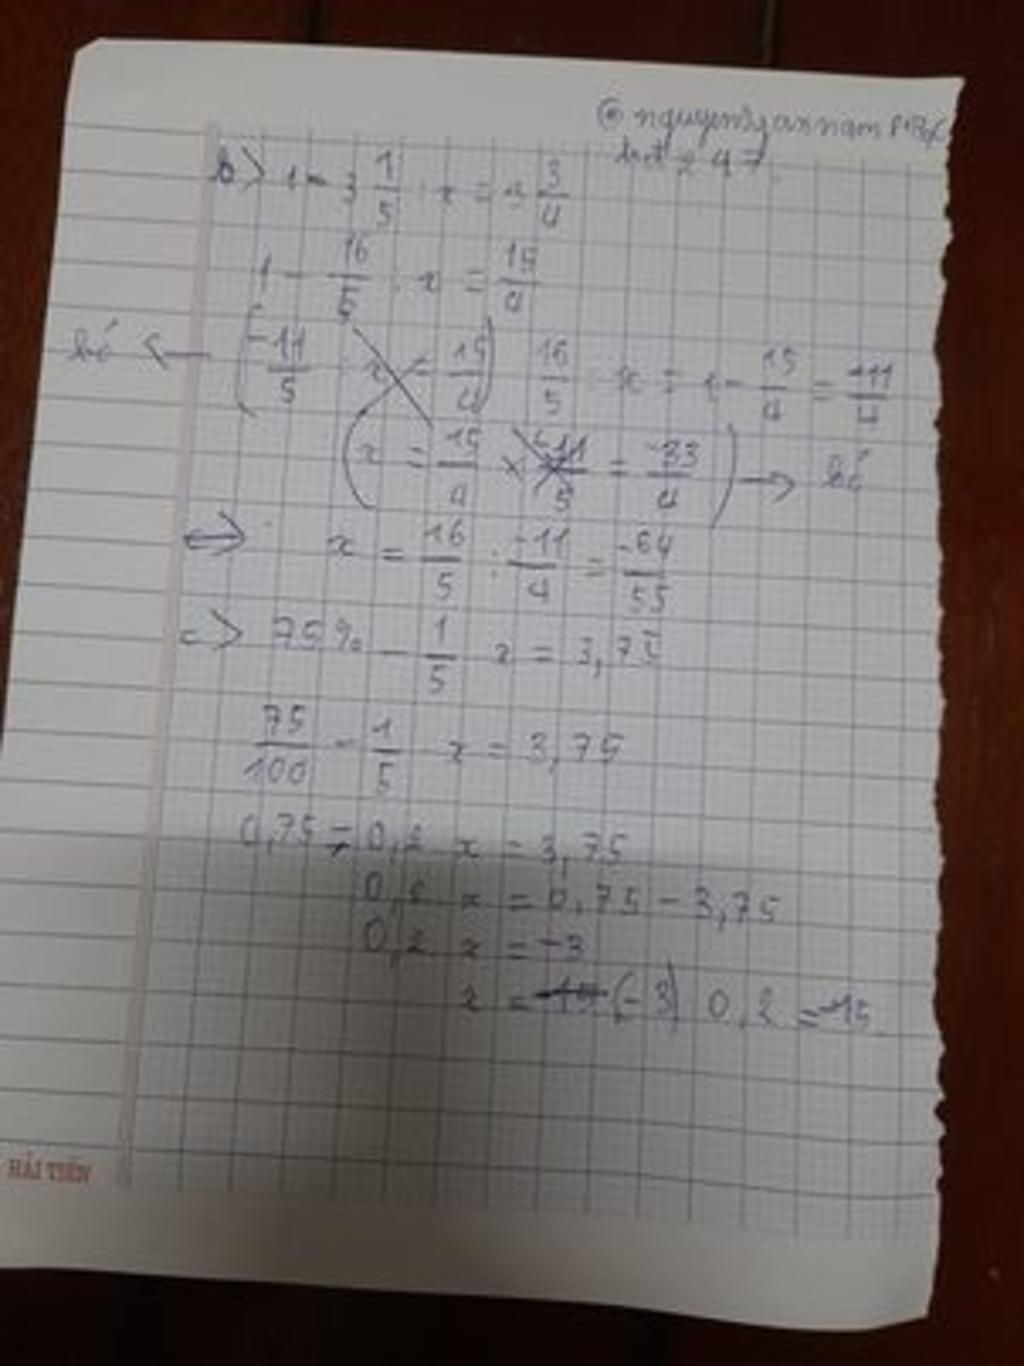 @ nguyen
2 4 7
b) 1 - 3 1/5 : x = 3/4
1 - 16/5 : x = 15/4
bỏ ← ( -11/5 : x = 15/4 ) 16/5 : x = 1 - 15/4 = -11/4
( x = 15/4 × -11/5 = -33/4 ) → bỏ
<=> x = 16/5 : -11/4 = -64/55
=> 75% - 1/5 x = 3,75
75/100 - 1/5 x = 3,75
0,75 - 0,2 x = 3,75
0,2 x = 0,75 - 3,75
0,2 x = -3
x = (-3) 0,2 = -15
HẢI TIẾN